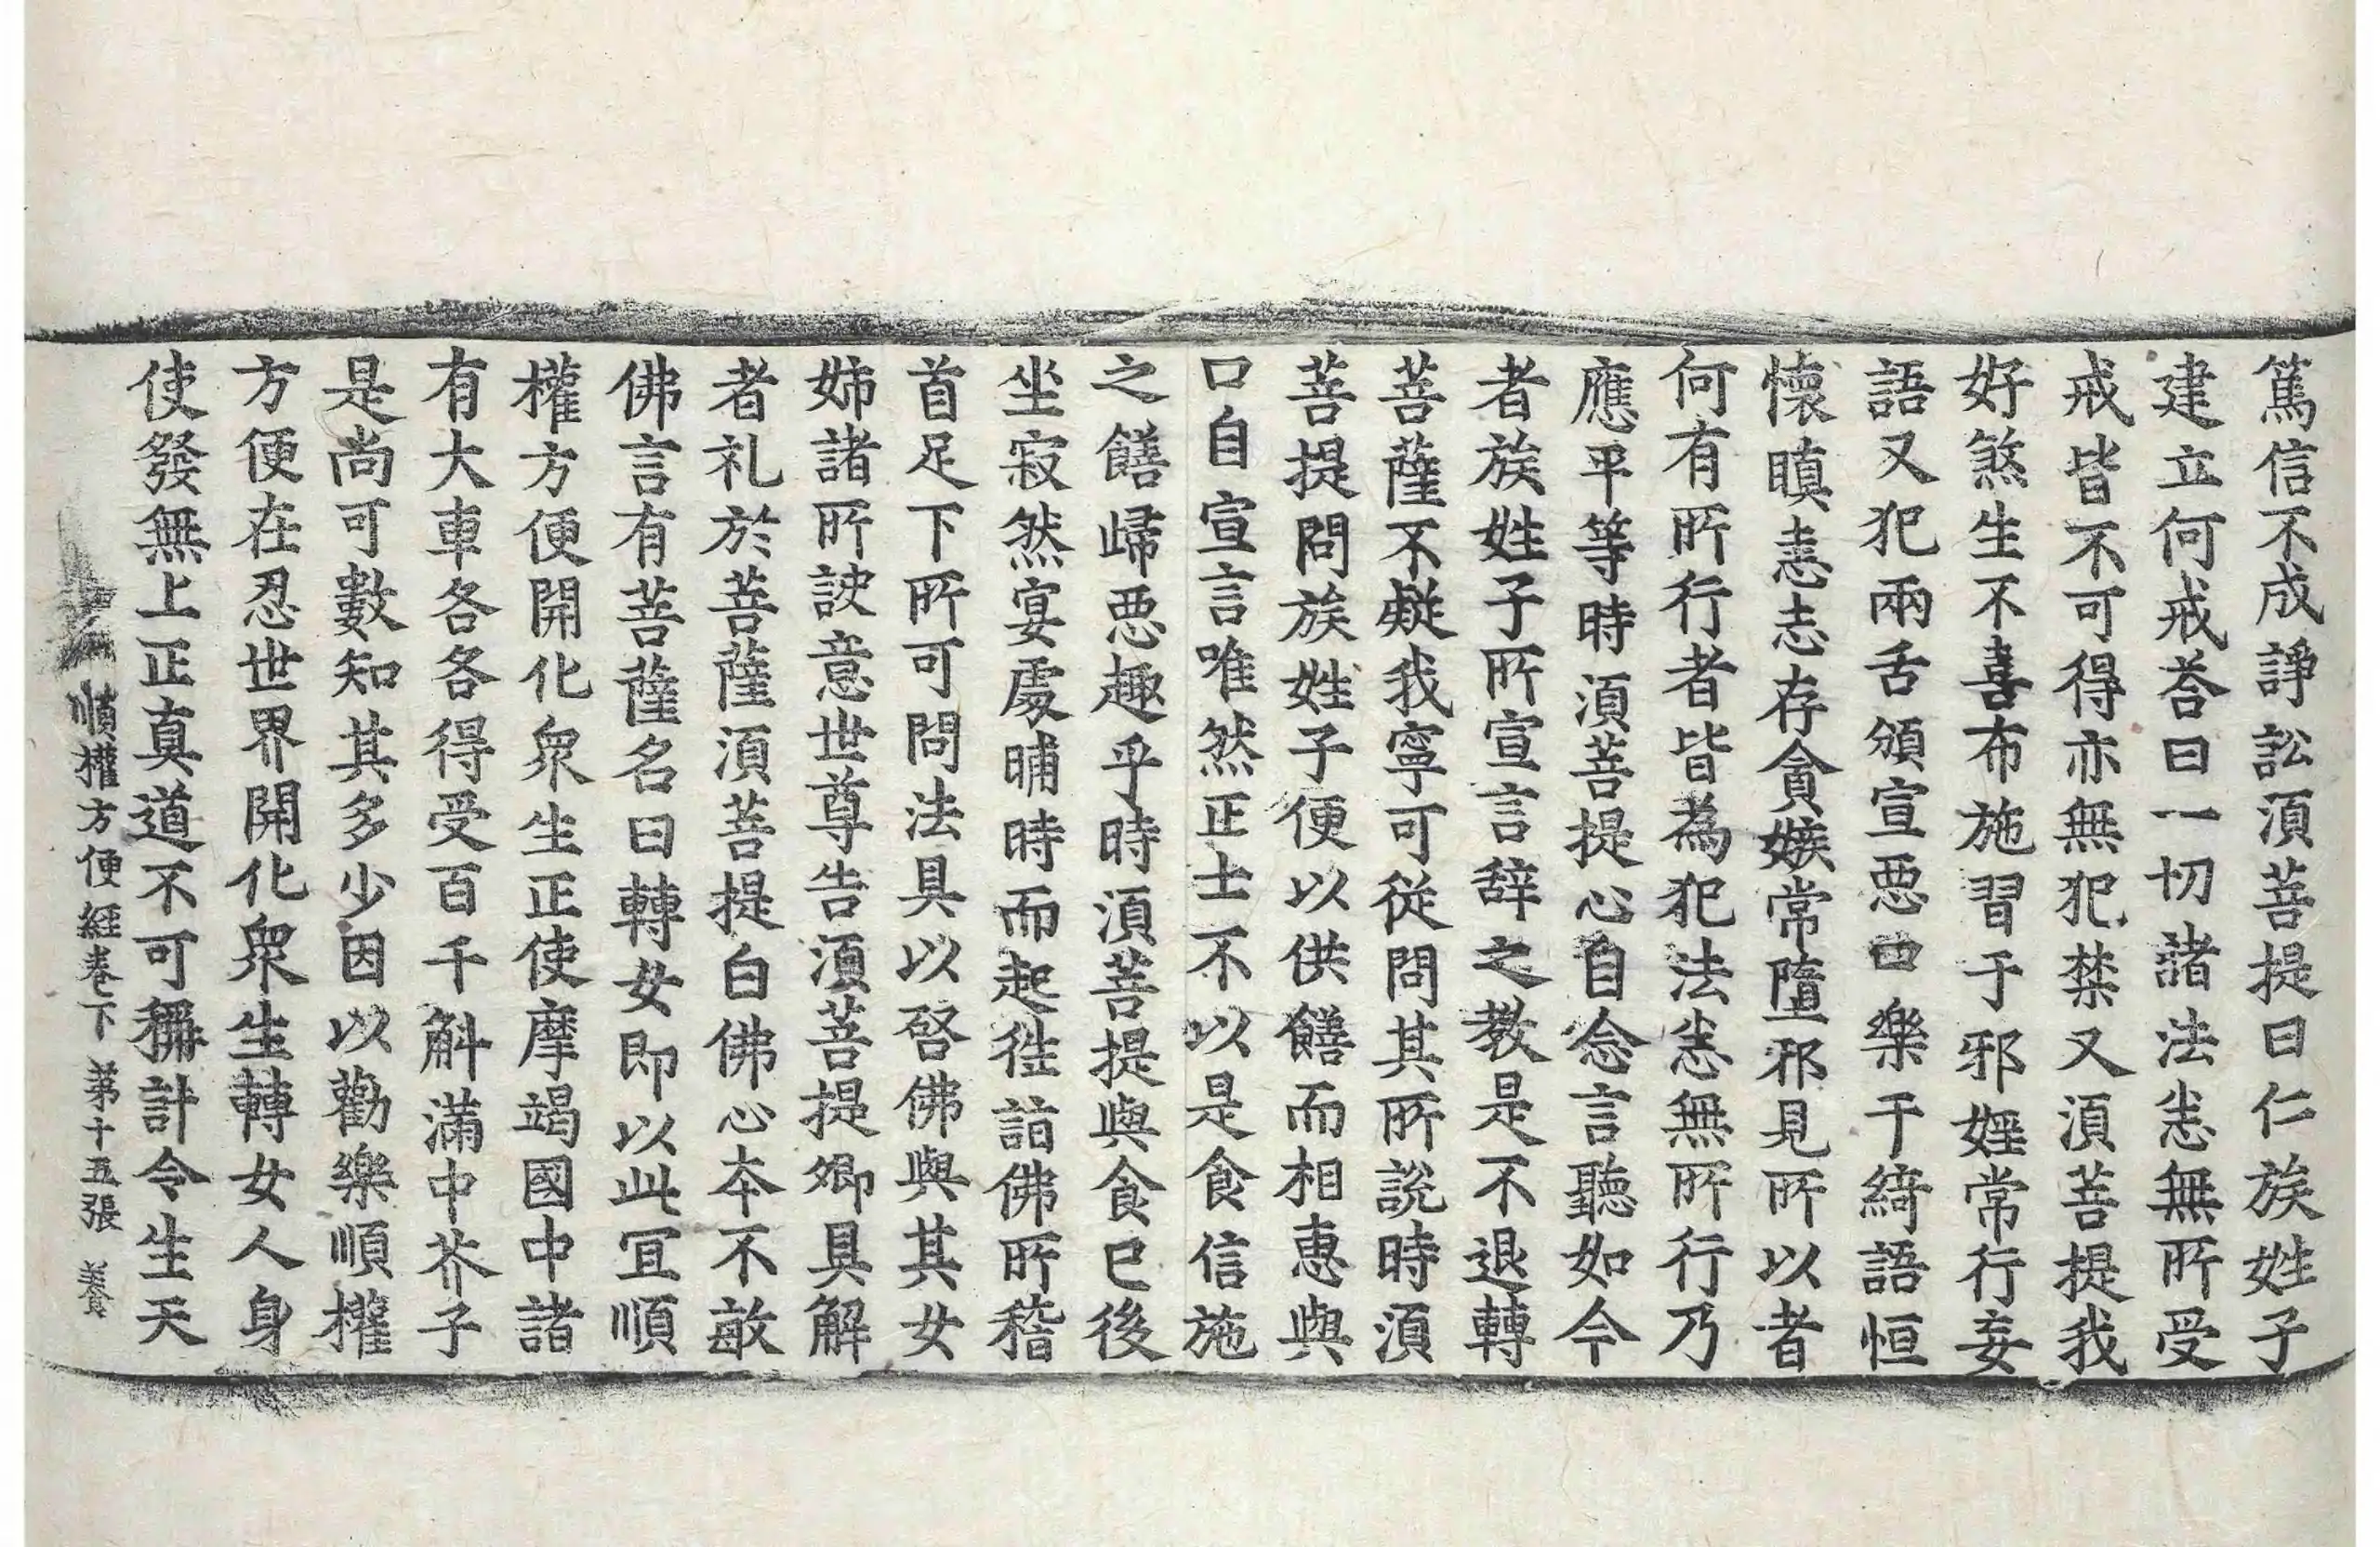 篤信不成諍訟湏菩提曰仁族姓子
建立何戒荅曰一切諸法悉無所受
戒皆不可得亦無犯禁又湏菩提我
好煞生不喜布施習于邪婬常行妄
語又犯兩舌頒宣惡口樂于綺語恒
懷瞋恚志存貪嫉常墮邪見所以者
何有所行者皆為犯法悉無所行乃
應平等時湏菩提心自念言聽如今
者族姓子所宣言辭之教是不退轉
菩薩不疑我寧可從問其所說時湏
菩提問族姓子便以供饍而相惠與
口自宣言唯然正士不以是食信施
之饍歸惡趣乎時湏菩提與食已後
坐寂然宴處晡時而起往詣佛所稽
首足下所可問法具以啓佛與其女
姉諸所訣意世尊告湏菩提卿具解
者礼於菩薩湏菩提白佛心本不敢
佛言有菩薩名曰轉女即以此宜順
權方便開化衆生正使摩竭國中諸
有大車各各得受百千斛滿中芥子
是尚可數知其多少因以勸樂順權
方便在忍世界開化衆生轉女人身
使發無上正真道不可稱計令生天
順權方便經卷下　第十五張　養